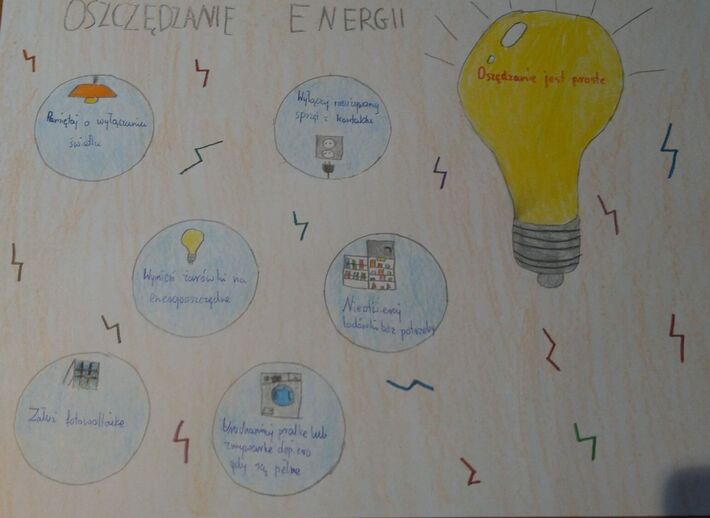 OSZCZĘDZANIE ENERGII
Oszędzanie jest proste
Pamiętaj o wyłączaniu
światła
Wyłączaj nieużywany
sprzęt z kontaktu
Wymień żarówki na
energooszczędne
Nieotwieraj
lodówki bez potrzeby
Załuż fotowoltaikę
Uruchamiaj pralkę lub
zmywarkę dopiero
gdy są pełne